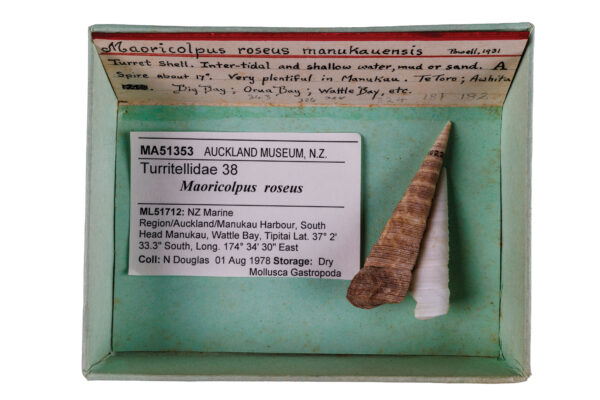 Maoricolpus roseus manukauensis Powell, 1931
Turret Shell. Inter-tidal and shallow water, mud or sand. A
Spire about 17°. Very plentiful in Manukau. Te Toro; Awhitu
Big Bay; Orua Bay; Wattle Bay, etc.
MA51353 AUCKLAND MUSEUM, N.Z.
Turritellidae 38
Maoricolpus roseus
ML51712: NZ Marine
Region/Auckland/Manukau Harbour, South
Head Manukau, Wattle Bay, Tipitai Lat. 37° 2'
33.3" South, Long. 174° 34' 30" East
Coll: N Douglas 01 Aug 1978 Storage: Dry
Mollusca Gastropoda